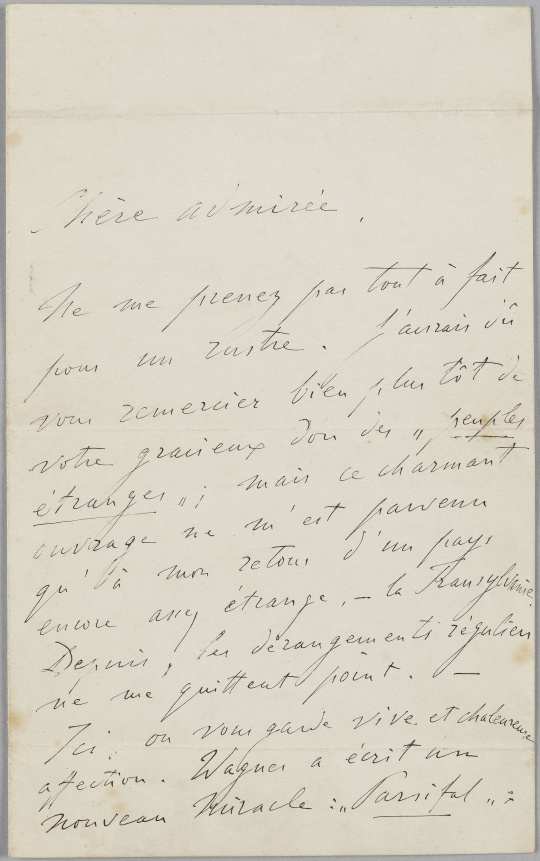 Chère admirée,
Ne me prenez pas tout à fait
pour un rustre. J'aurais dû
vous remercier bien plus tôt de
votre gracieux don des „peuples
étranges„; mais ce charmant
ouvrage ne m'est parvenu
qu'à mon retour d'un pays
encore assez étrange, – la Transylvanie.
Depuis, les dérangements réguliers
ne me quittent point. —
Ici, on vous garde vive et chaleureuse
affection. Wagner a écrit un
nouveau miracle : „Parsifal„ :